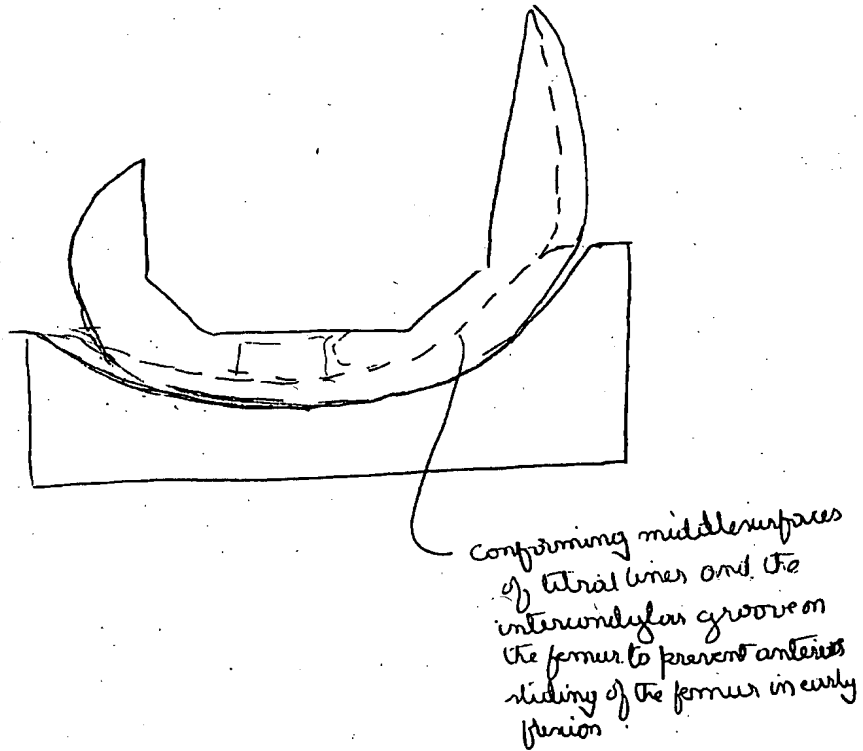 Conforming middle surfaces
of tibial liner and the
intercondylar groove on
the femur to prevent anterior
sliding of the femur in early
flexion.